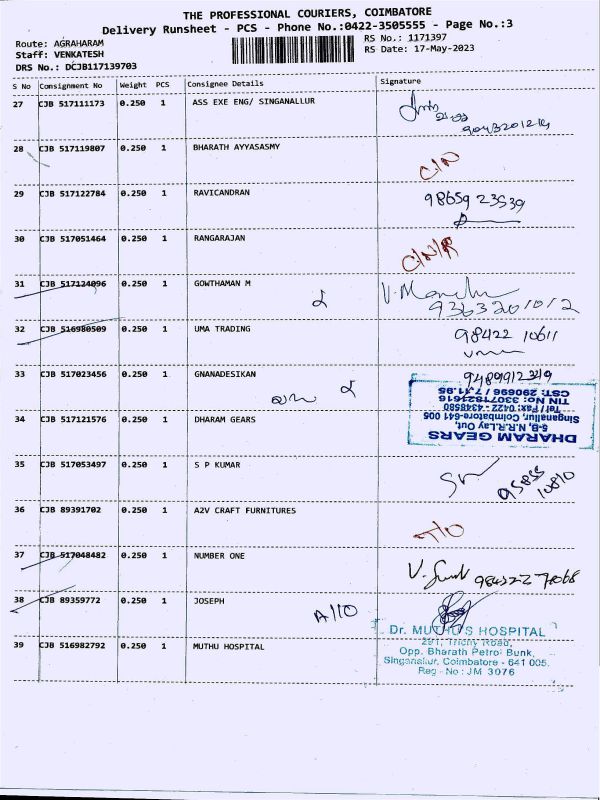 THE PROFESSIONAL COURIERS, COIMBATORE
Delivery Runsheet - PCS - Phone No.:0422-3505555 - Page No.:3
Route: AGRAHARAM RS No.: 1171397
Staff: VENKATESH RS Date: 17-May-2023
DRS No.: DCJB117139703
S No Consignment No Weight PCS Consignee Details Signature
27 CJB 517111173 0.250 1 ASS EXE ENG/ SINGANALLUR
28 CJB 517119807 0.250 1 BHARATH AYYASASMY C/N
29 CJB 517122784 0.250 1 RAVICANDRAN 98659 23539
30 CJB 517051464 0.250 1 RANGARAJAN C/N/R
31 CJB 517124096 0.250 1 GOWTHAMAN M
9363201012
32 CJB 516980509 0.250 1 UMA TRADING 98422 10611
33 CJB 517023456 0.250 1 GNANADESIKAN 9489912349
34 CJB 517121576 0.250 1 DHARAM GEARS
DHARAM GEARS
5-B, N.R.R.Lay Out,
Singanallur, Coimbatore-641 005
Tel / Fax: 0422 - 4348580
TIN No: 33071821616
CST: 290696 / 7.11.95
35 CJB 517053497 0.250 1 S P KUMAR 95855
10810
36 CJB 89391702 0.250 1 A2V CRAFT FURNITURES
37 CJB 517048482 0.250 1 NUMBER ONE
38 CJB 89359772 0.250 1 JOSEPH A110
39 CJB 516982792 0.250 1 MUTHU HOSPITAL
Dr. MUTHU'S HOSPITAL
291, Trichy Road,
Opp. Bharath Petrol Bunk,
Singanallur, Coimbatore - 641 005.
Reg - No : JM 3076